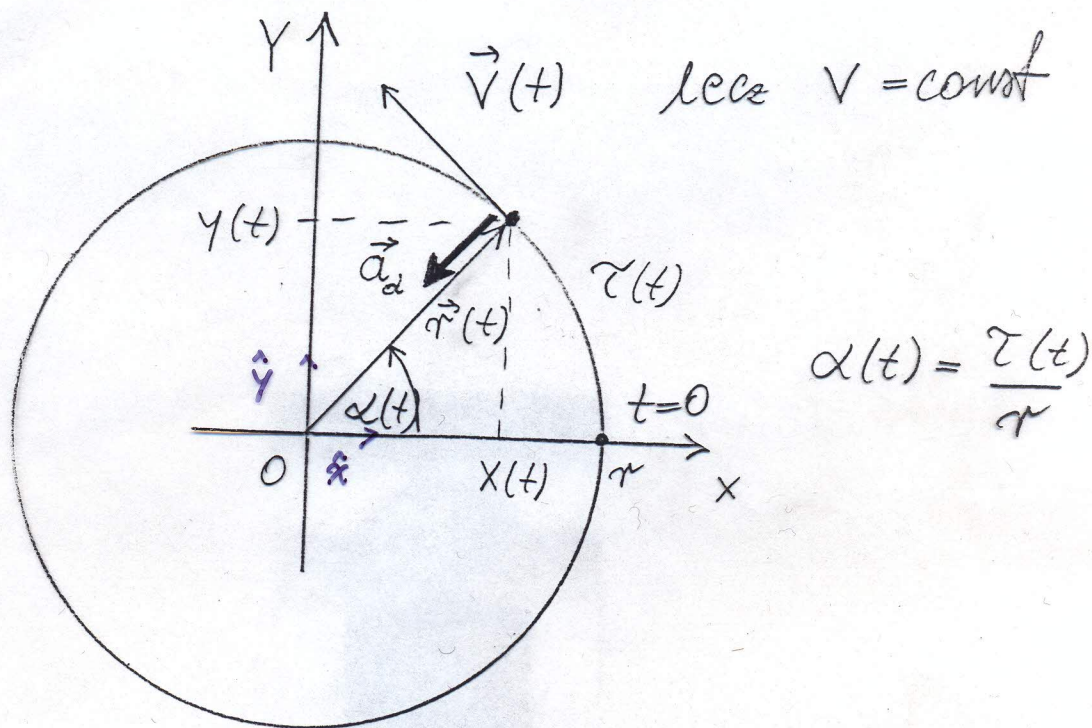 Y
V⃗(t) lecz V = const
y(t)
a⃗_d
τ(t)
r⃗(t)
α(t) = τ(t)/r
ŷ
α(t)
t=0
O
x̂
X(t)
r
x